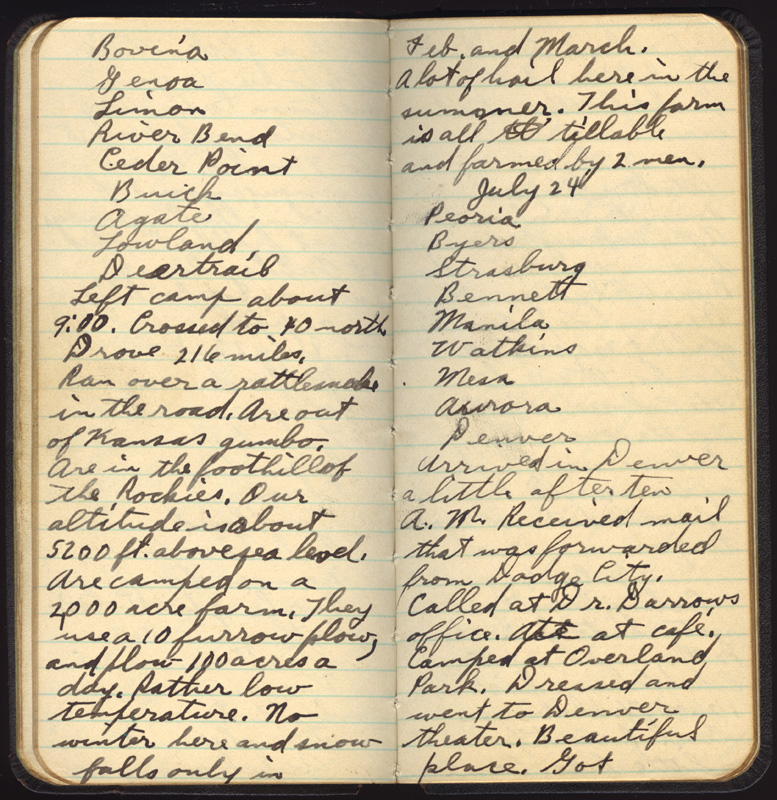 Bovina
Genoa
Limon
River Bend
Ceder Point
Buick
Agate
Lowland,
Deertrail
Left camp about
9:00. Crossed to 40 north
Drove 216 miles.
Ran over a rattlesnake
in the road. Are out
of Kansas gumbo.
Are in the foothill of
the Rockies. Our
altitude is about
5200 ft. above sea level.
Are camped on a
2000 acre farm. They
use a 10 furrow plow,
and plow 100 acres a
day. Rather low
temperature. No
winter here and snow
falls only in
Feb. and March.
A lot of hail here in the
summer. This farm
is all tillable
and farmed by 2 men.
July 24
Peoria
Byers
Strasburg
Bennett
Manila
Watkins
Mesa
Aurora
Denver
Arrived in Denver
a little after ten
A.M. Received mail
that was forwarded
from Dodge City.
Called at Dr. Darrows
office. Ate at café.
Camped at Overland
Park. Dressed and
went to Denver
theater. Beautiful
place. Got